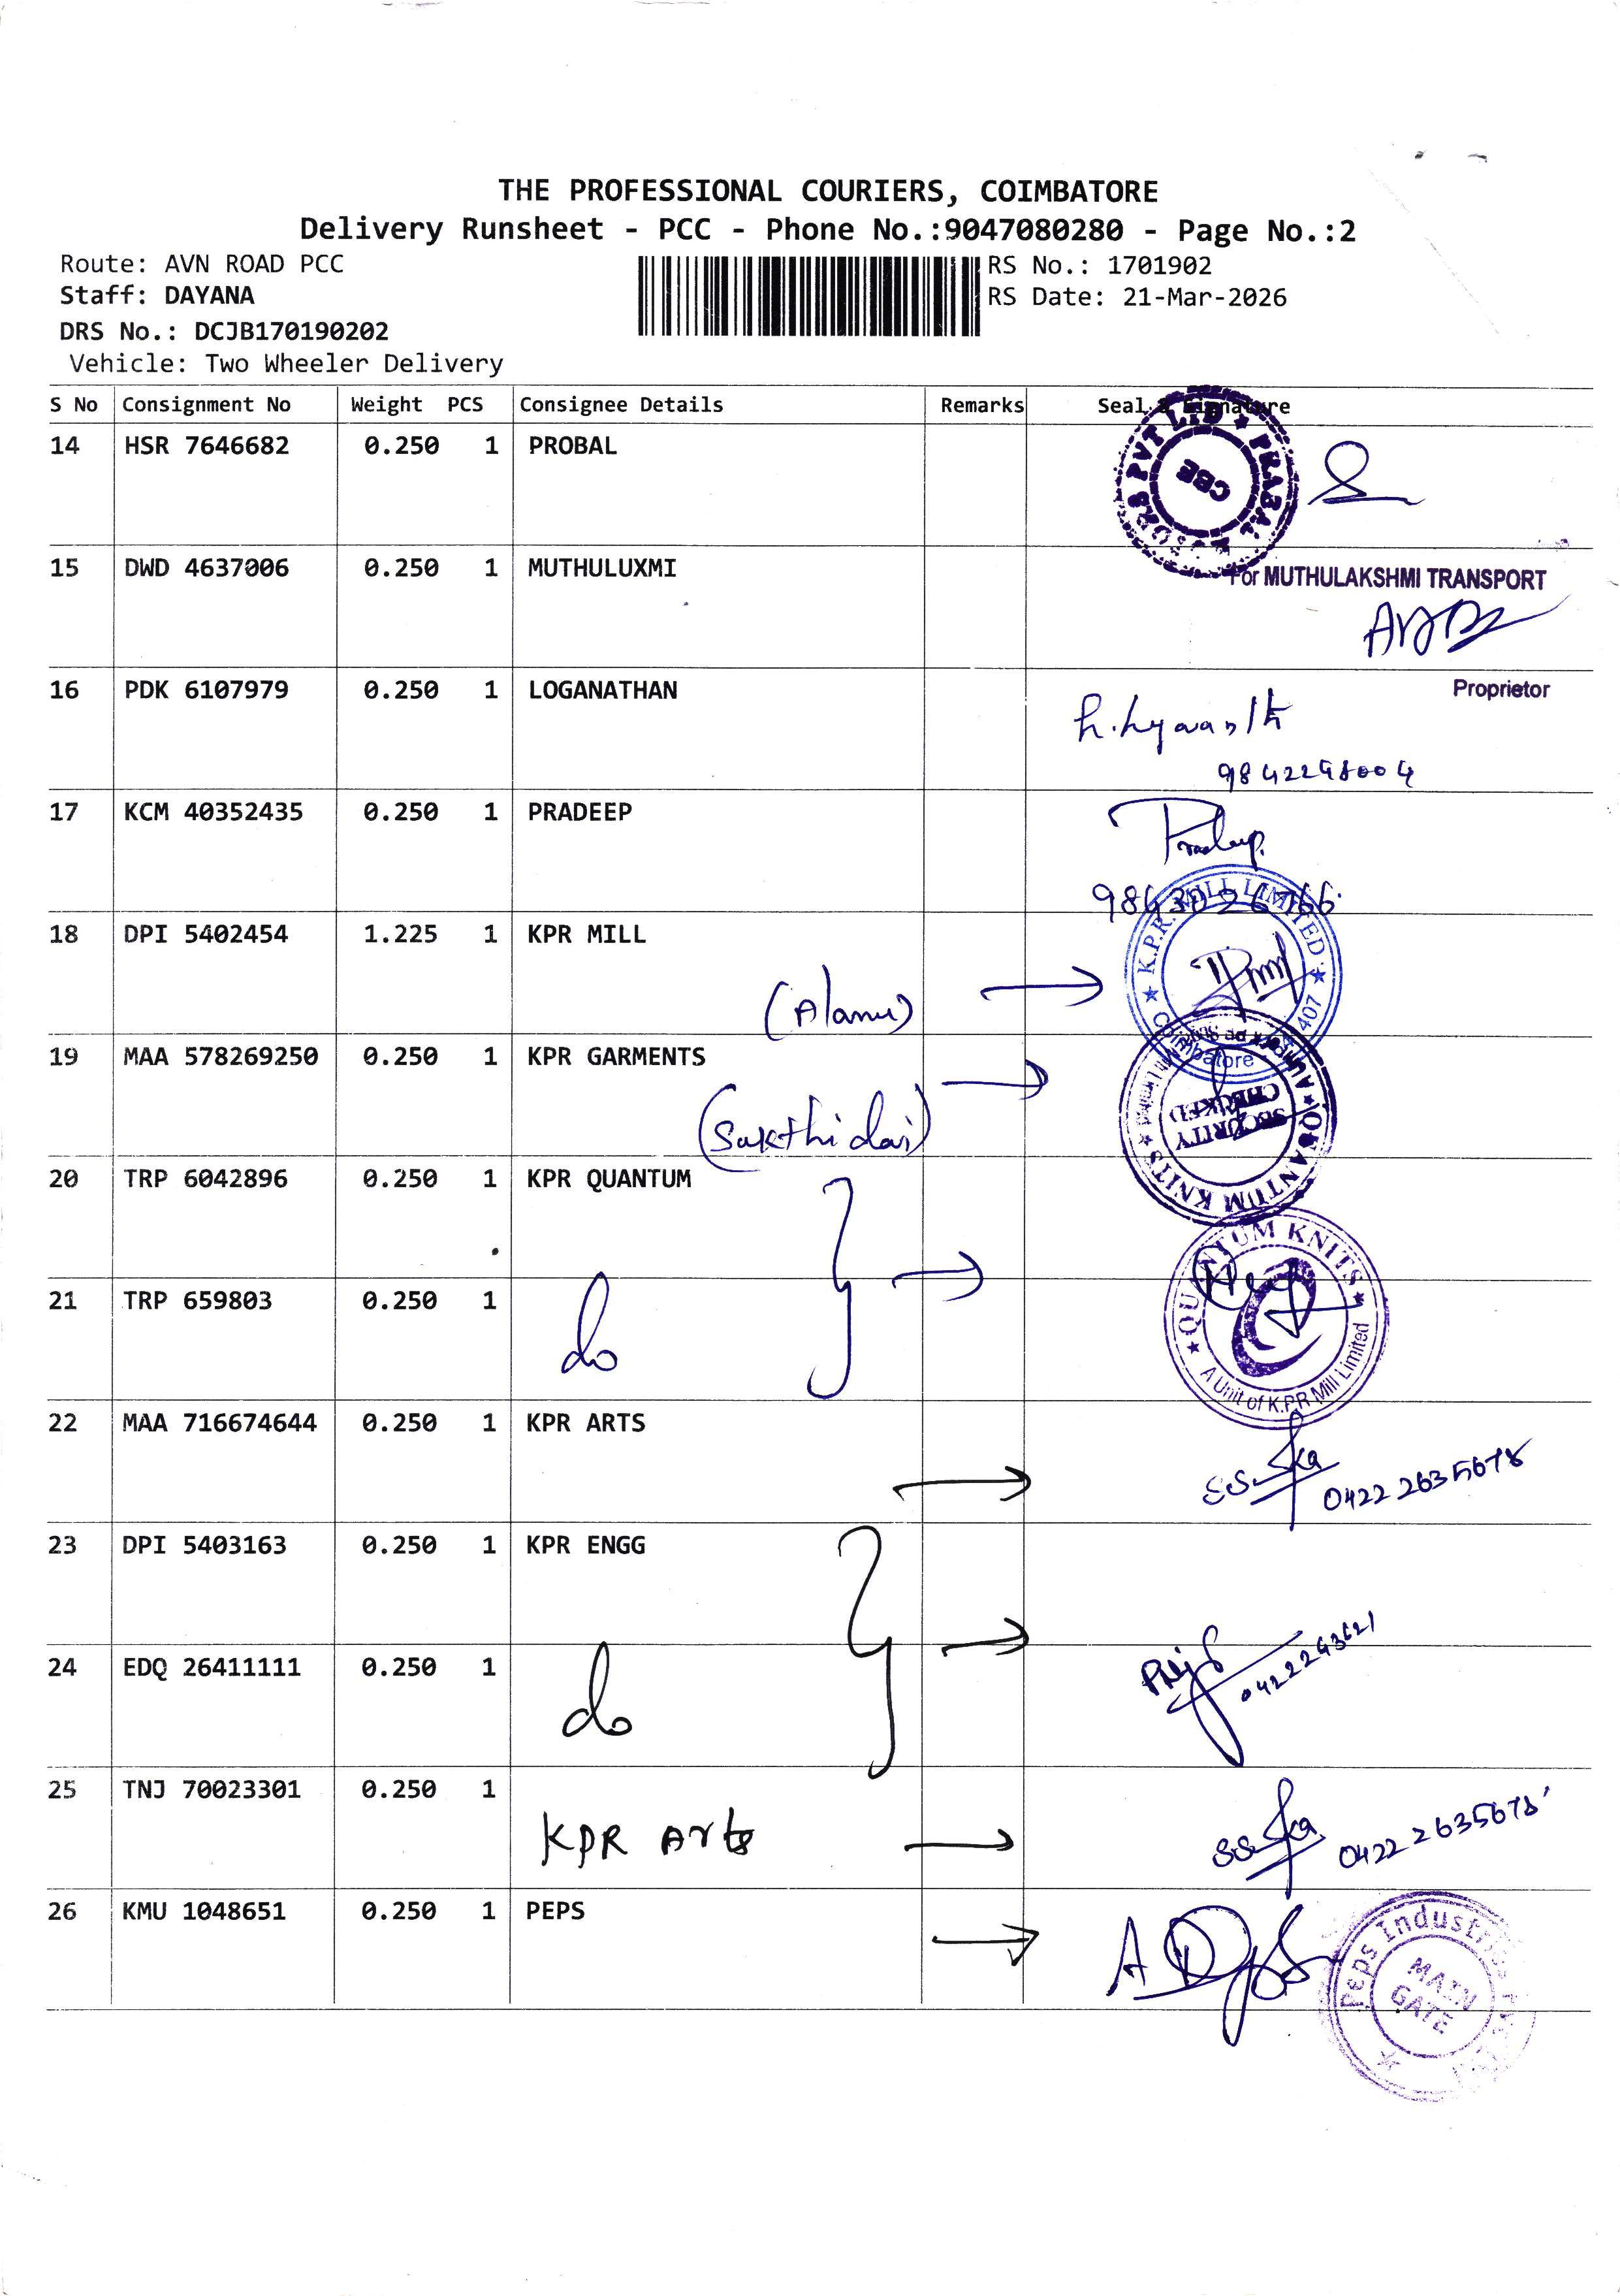 THE PROFESSIONAL COURIERS, COIMBATORE
Delivery Runsheet - PCC - Phone No.:9047080280 - Page No.:2
Route: AVN ROAD PCC
RS No.: 1701902
Staff: DAYANA
RS Date: 21-Mar-2026
DRS No.: DCJB170190202
Vehicle: Two Wheeler Delivery
S No Consignment No Weight PCS Consignee Details Remarks Seal & Signature
14 HSR 7646682 0.250 1 PROBAL
PVT LTD ★ PRABAL
CBE
15 DWD 4637006 0.250 1 MUTHULUXMI
For MUTHULAKSHMI TRANSPORT
16 PDK 6107979 0.250 1 LOGANATHAN
Proprietor
9842248004
17 KCM 40352435 0.250 1 PRADEEP
Pradeep
18 DPI 5402454 1.225 1 KPR MILL
K.P.R. MILL LIMITED
Coimbatore 407
19 MAA 578269250 0.250 1 KPR GARMENTS
QUANTUM KNITS
SECURITY
CHECKED
20 TRP 6042896 0.250 1 KPR QUANTUM
QUANTUM KNITS
A Unit of K.P.R Mill Limited
21 TRP 659803 0.250 1 do
22 MAA 716674644 0.250 1 KPR ARTS
0422 2635678
23 DPI 5403163 0.250 1 KPR ENGG
24 EDQ 26411111 0.250 1 do
25 TNJ 70023301 0.250 1 KPR Arts
0422 2635678
26 KMU 1048651 0.250 1 PEPS
Peps Industries
MAIN
GATE